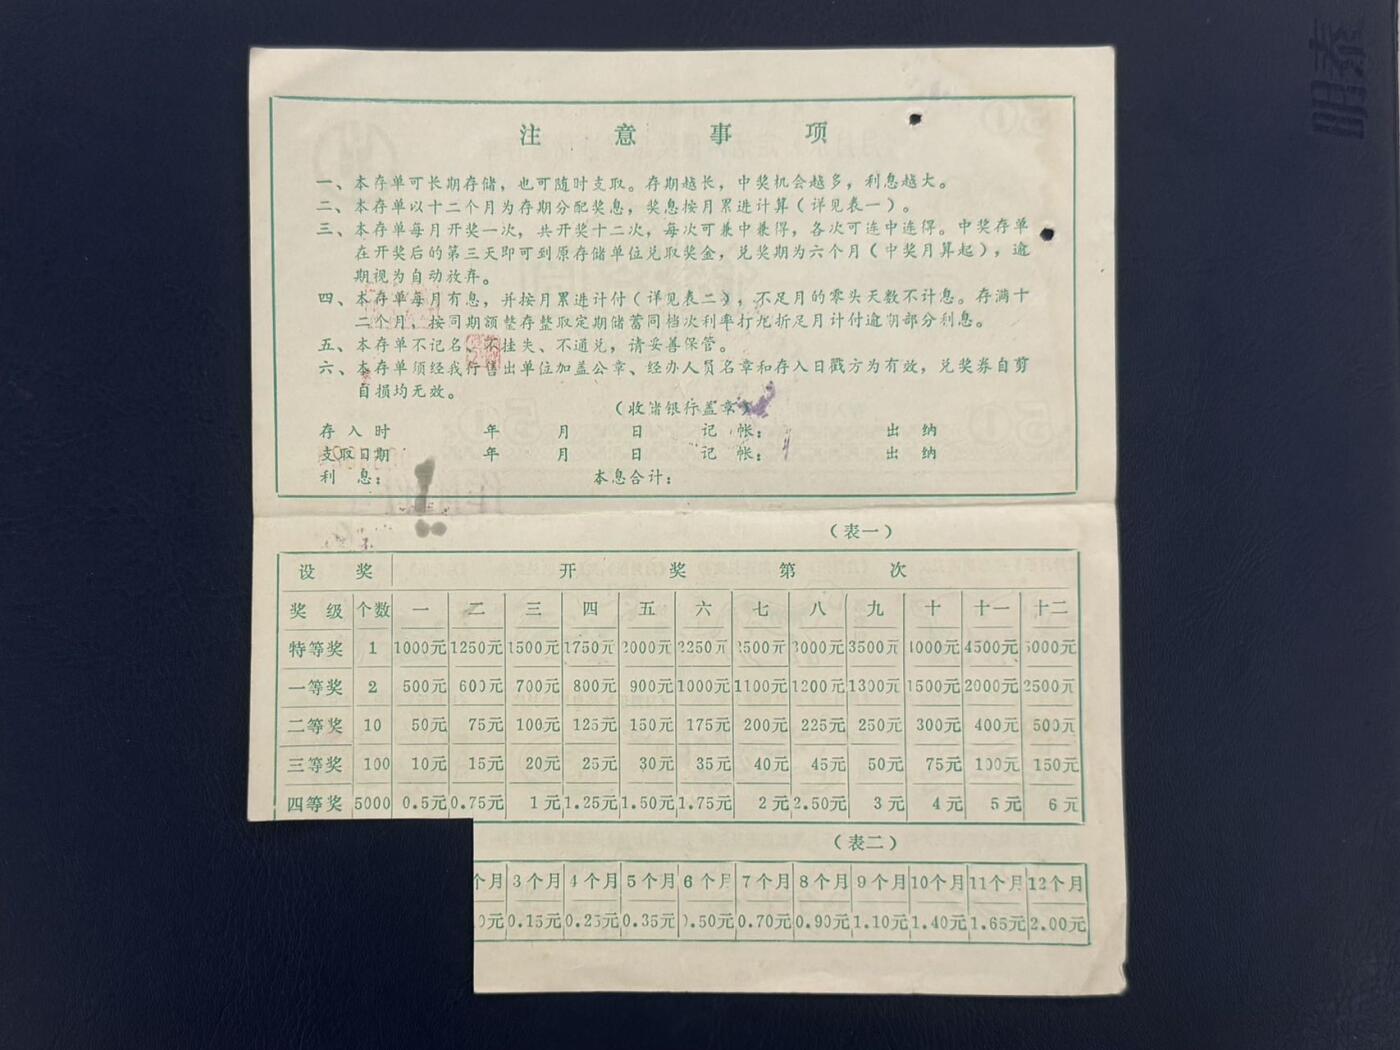 明泰
注意事项
一、本存单可长期存储，也可随时支取。存期越长，中奖机会越多，利息越大。
二、本存单以十二个月为存期分配奖息，奖息按月累进计算（详见表一）。
三、本存单每月开奖一次，共开奖十二次，每次可兼中兼得，各次可连中连得。中奖存单
在开奖后的第三天即可到原存储单位兑取奖金，兑奖期为六个月（中奖月算起），逾
期视为自动放弃。
四、本存单每月有息，并按月累进计付（详见表二），不足月的零头天数不计息。存满十
二个月，按同期额整存整取定期储蓄同档次利率打九折足月计付逾期部分利息。
五、本存单不记名、不挂失、不通兑，请妥善保管。
六、本存单须经我行售出单位加盖公章、经办人员名章和存入日戳方为有效，兑奖券自剪
自损均无效。
（收储银行盖章）
存入时 年 月 日 记 帐： 出 纳
支取日期 年 月 日 记 帐： 出 纳
利 息： 本息合计：
（表一）
设 奖 开 奖 第 次
奖 级 个数 一 二 三 四 五 六 七 八 九 十 十一 十二
特等奖 1 1000元 1250元 1500元 1750元 2000元 2250元 2500元 3000元 3500元 4000元 4500元 5000元
一等奖 2 500元 600元 700元 800元 900元 1000元 1100元 1200元 1300元 1500元 2000元 2500元
二等奖 10 50元 75元 100元 125元 150元 175元 200元 225元 250元 300元 400元 500元
三等奖 100 10元 15元 20元 25元 30元 35元 40元 45元 50元 75元 100元 150元
四等奖 5000 0.5元 0.75元 1元 1.25元 1.50元 1.75元 2元 2.50元 3元 4元 5元 6元
（表二）
个月 3个月 4个月 5个月 6个月 7个月 8个月 9个月 10个月 11个月 12个月
0元 0.15元 0.25元 0.35元 0.50元 0.70元 0.90元 1.10元 1.40元 1.65元 2.00元